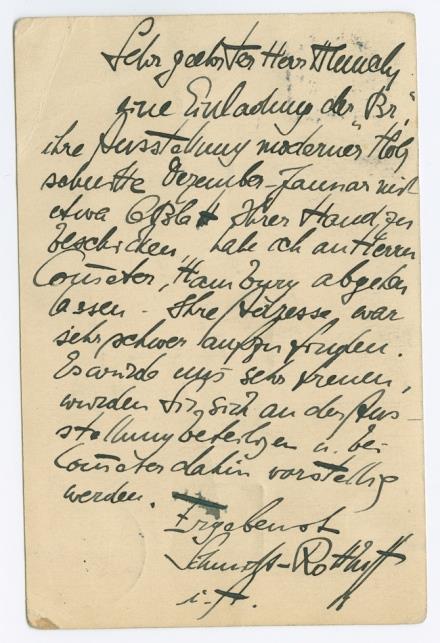 Sehr geehrter Herr
eine Einladung der "Br."
ihre Ausstellung moderner Holz
schnitte Dezember-Januar mit
etwa 6 Blatt Ihrer Hand zu
beschicken, habe ich an Herrn
Cométer, Hamburg abgehen
lassen. Ihre Adresse war
sehr schwer aufzufinden.
Es würde uns sehr freuen,
würden Sie sich an der Aus-
stellung beteiligen u. bei
Cométer dahin vorstellig
werden.
Ergebenst
Schmidt-Rottluff